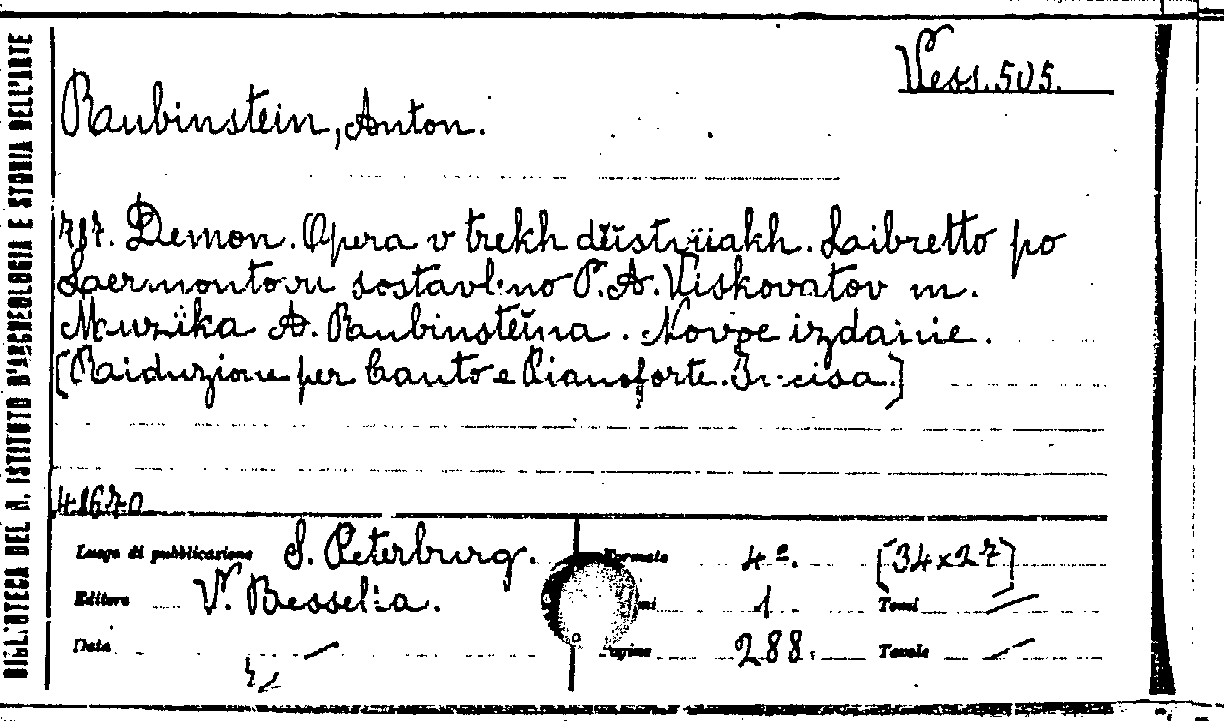 BIBLIOTECA DEL R. ISTITUTO D'ARCHEOLOGIA E STORIA DELL'ARTE
Vess. 505.
Rubinstein, Anton.
787. Demon. Opera v trekh dĕĭstvïiakh. Libretto po
Lermontovu sostavleno P. A. Viskovatov m.
Muzÿka A. Rubinsteĭna. Novoe izdanie.
[Riduzione per Canto e Pianoforte. Incisa.]
41670
Luogo di pubblicazione S. Peterburg. Formato 4º. [34x27]
Editore V. Bessel:a. 1 Tomi —
Data — Pagine 288. Tavole —